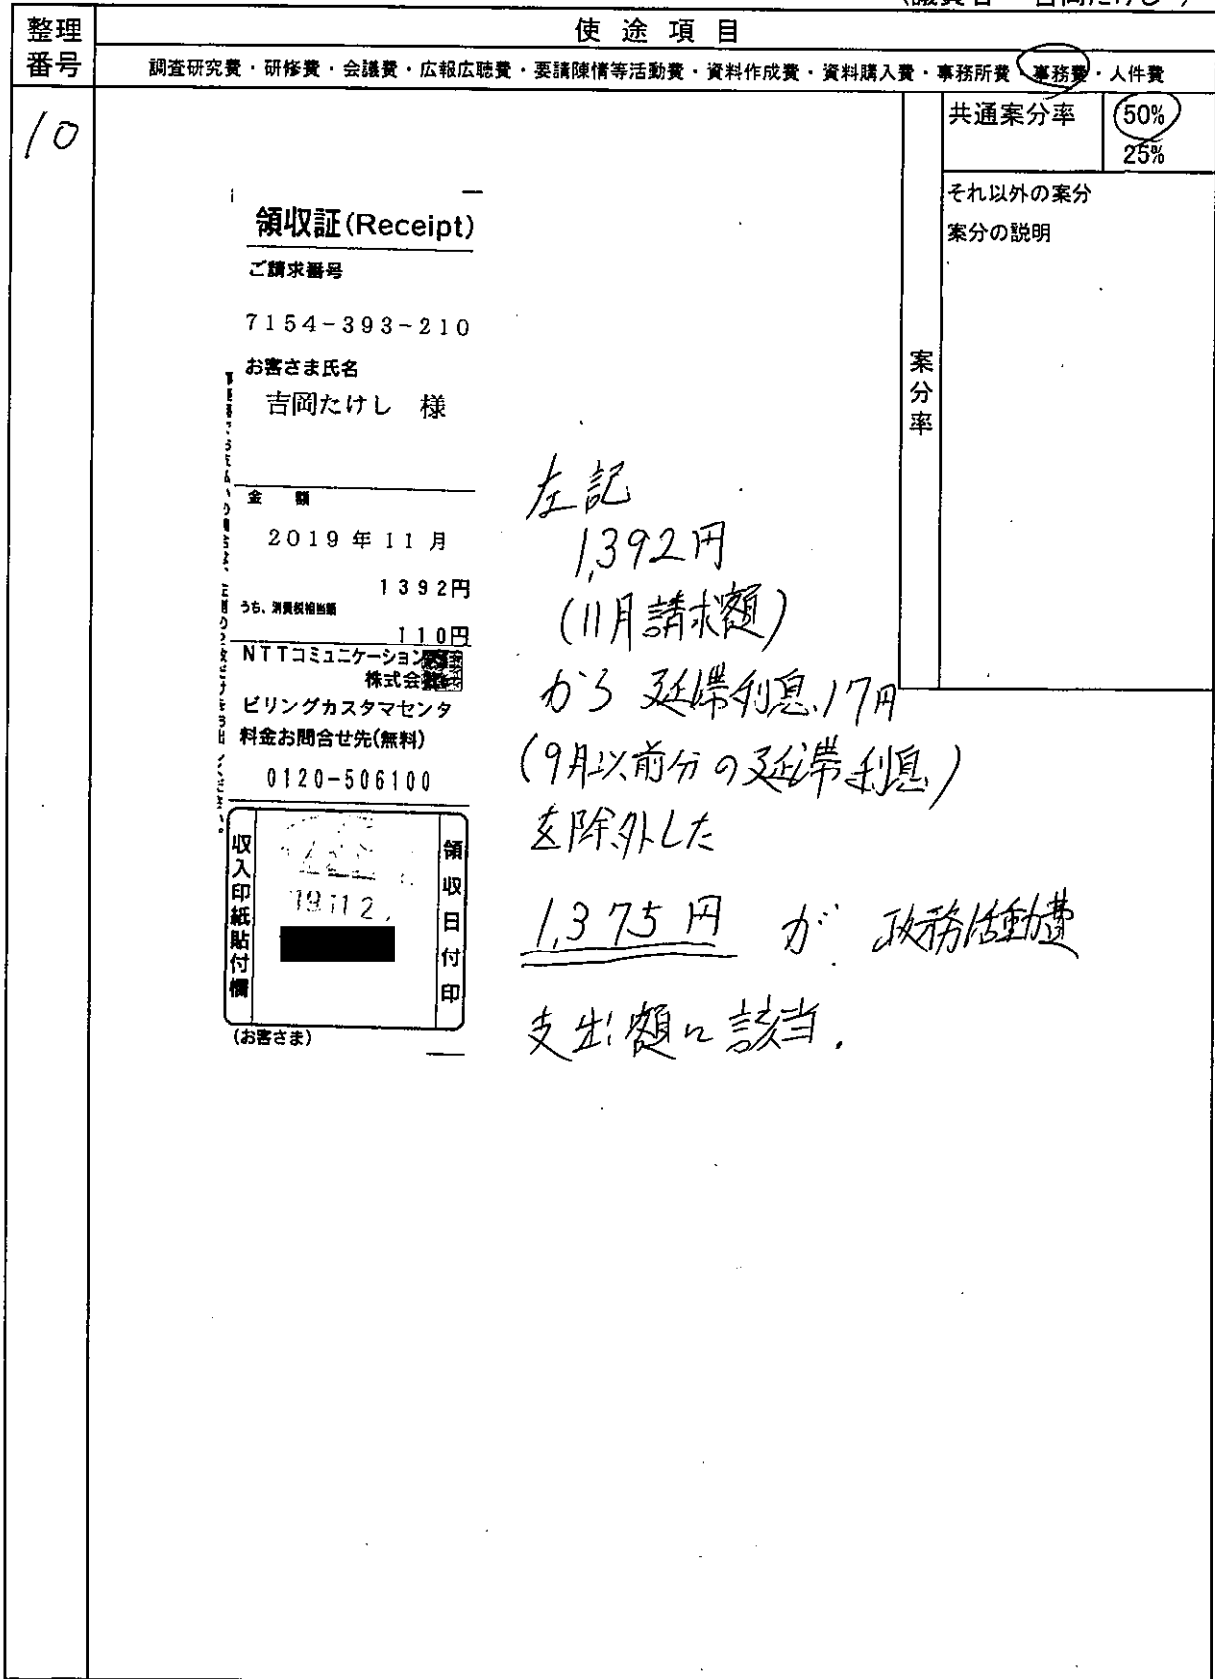 (議員名 吉岡たけし)
整理番号
使途項目
調査研究費・研修費・会議費・広報広聴費・要請陳情等活動費・資料作成費・資料購入費・事務所費・事務費・人件費
10
共通案分率
50%
25%
それ以外の案分
案分の説明
案分率
領収証(Receipt)
ご請求番号
7154-393-210
お客さま氏名
吉岡たけし 様
金 額
2019年11月
1392円
うち、消費税相当額
110円
NTTコミュニケーション
株式会
ビリングカスタマセンタ
料金お問合せ先(無料)
0120-506100
収入印紙貼付欄
領収日付印
(お客さま)
左記
1,392円
(11月請求額)
から延滞利息17円
(9月以前分の延滞利息)
を除外した
1,375円 が 政務活動費
支出額に該当.